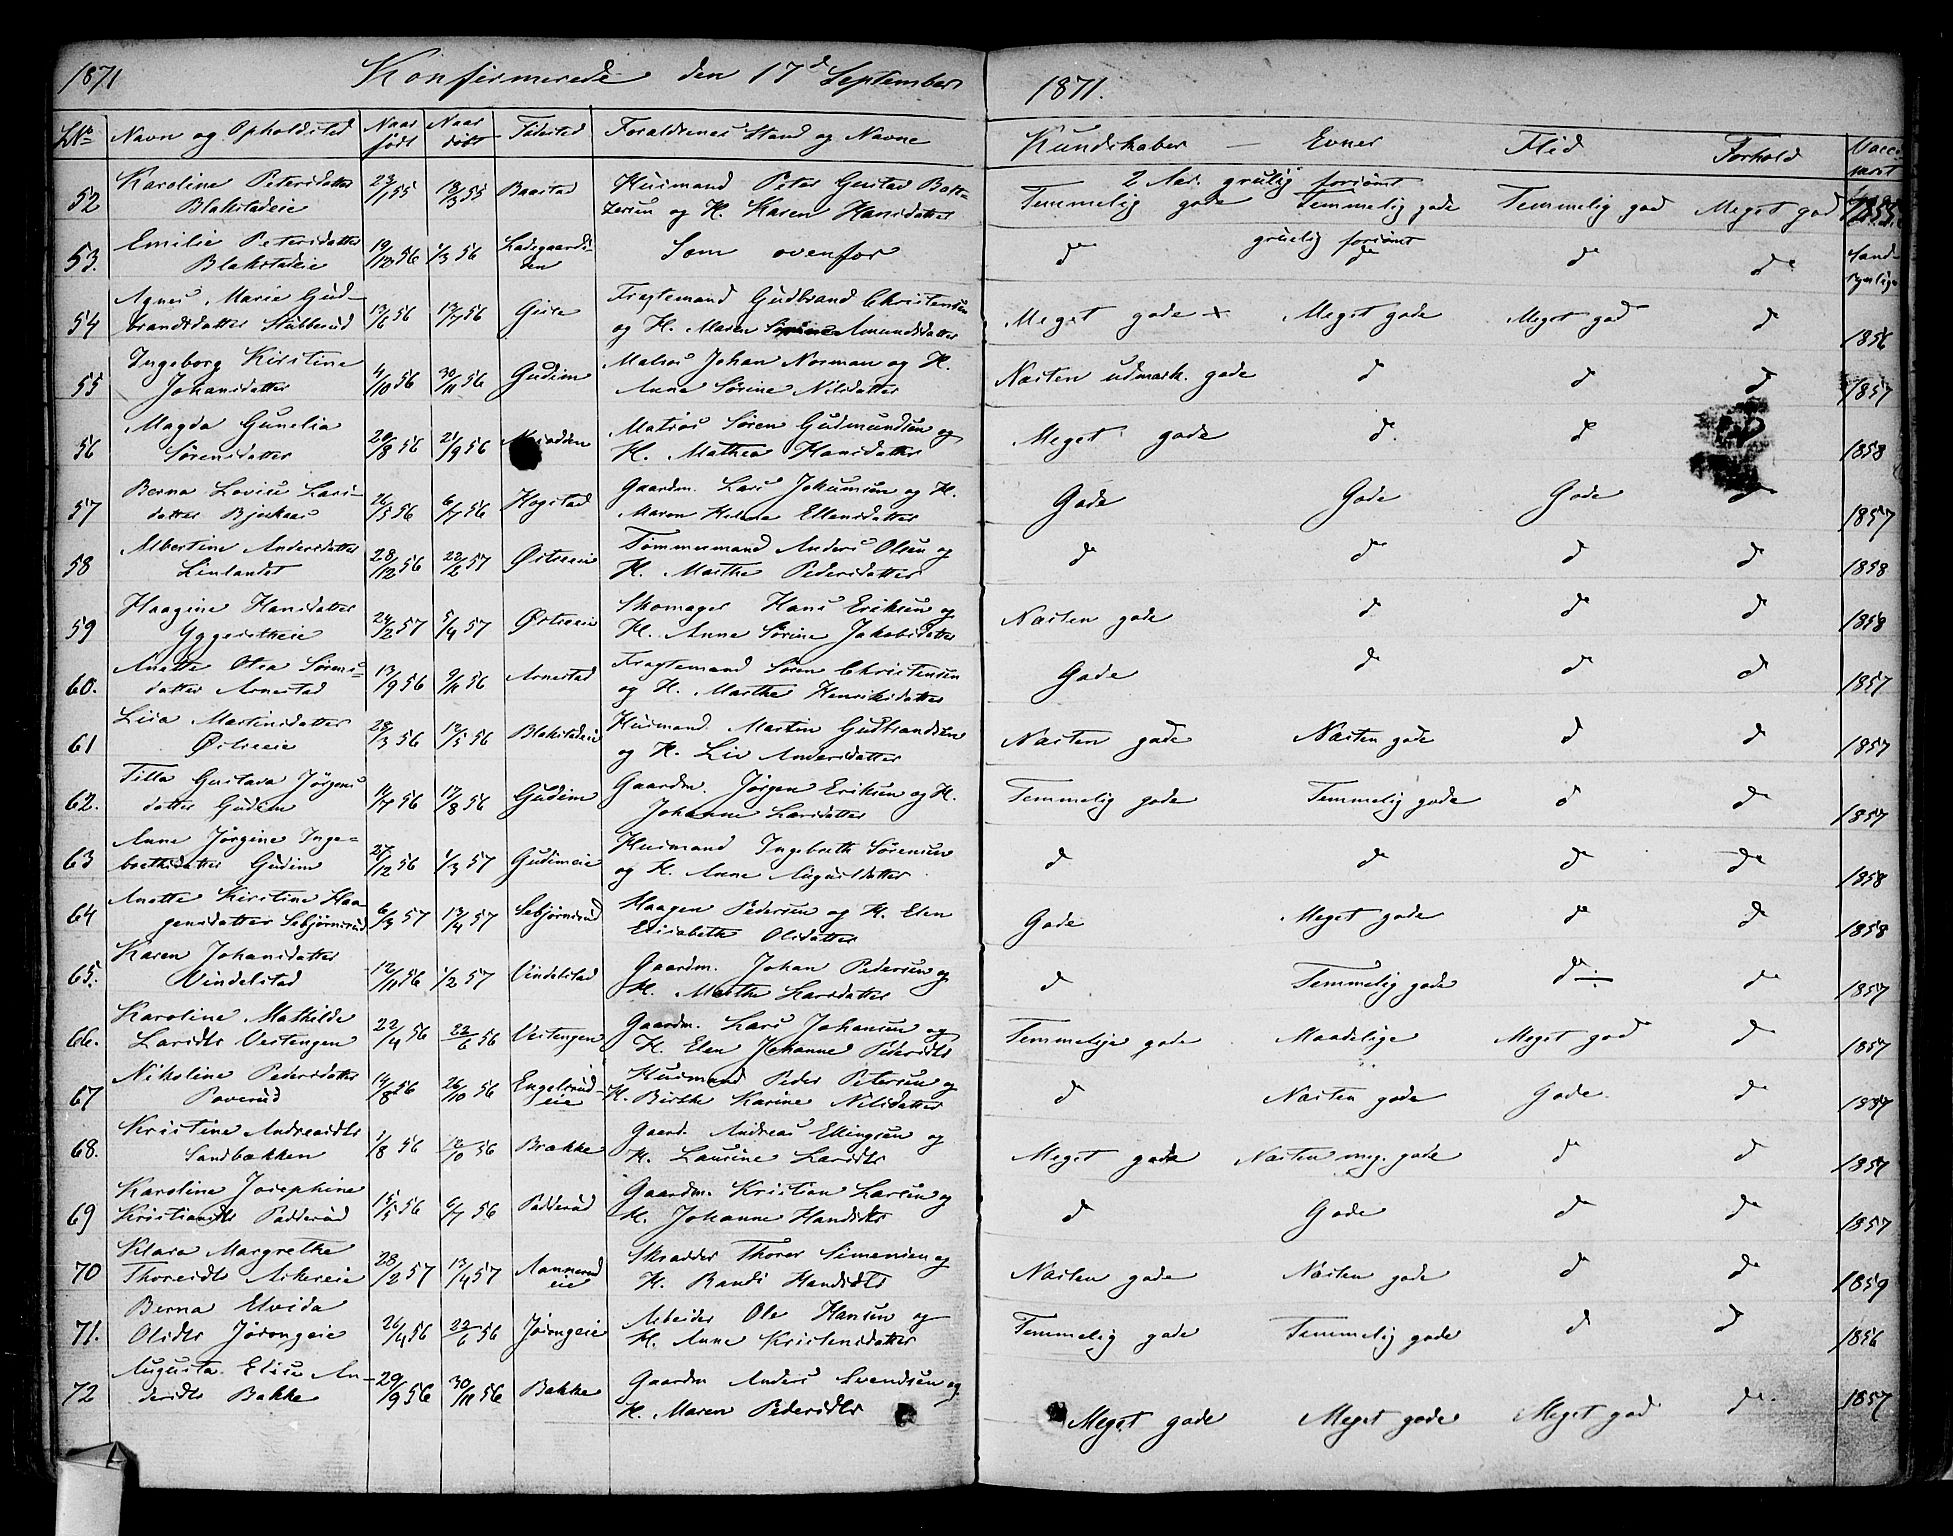 1871 Konfirmerede den 17d September 1871.
No Navn og Opholdssted Naar født Naar døbt Fødested Foraldrenes Stand og Navne Kundskaber — Evner Flid Forhold
52 Karoline Petersdatter 23/1 55 18/3 55 Baastad Husmand Peter Gustav
Blakstadeie og H. Karen Hansdatter Temmelig gode Temmelig gode Temmelig god Meget god
53. Emilie Petersdatter 19/12 56 1/3 56 Som ovenfor d d d d
Blakstadeie
54 Agnes Marie Gud- 13/6 56 13/7 56 Fragtemand Gudbrand Christensen Meget gode x Meget gode Meget god d 1856
brandsdatter Stubberud og H. Maren Amundsdatter
55 Ingeborg Kirstine 4/10 56 30/11 56 Gudim Matros Johan Norman og H. Næsten udmærk. gode d d d 1857
Johansdatter Anne Sørine Nilsdatter
56 Magda Gunelia 20/8 56 21/9 56 Matros Søren Gudmundsen og Meget gode d. d 1858
Sørensdatter H. Mathea Hansdatter
57 Berna Lovise Lars- 26/5 56 6/7 56 Hogstad Gaardm. Lars Jokumsen og H. Gode Gode Gode d 1857
datter Bjerkaas Maren Helene Ellensdatter
58 Albertine Andersdatter 28/12 56 22/2 57 Østreeie Tømmermand Anders Olsen og d d d d 1858
Linlandet H. Marthe Pedersdatter
59 Haagine Hansdatter 24/2 57 5/4 57 Østreeie Skomager Hans Eriksen og Næsten gode d d d 1858
Yggesetheie H. Anne Sørine Jakobsdatter
60. Anette Olea Sørens- 13/9 56 9/11 56 Arnestad Fragtemand Søren Christensen Gode d d d 1857
datter Arnestad og H. Marthe Henriksdatter
61 Lisa Martinsdatter 28/3 56 12/5 56 Blakstadeie Husmand. Martin Gudbrandsen Næsten gode Næsten gode d d 1857
Østreeie og H. Liv Andersdatter
62. Tilla Gustava Jørgens 11/7 56 17/8 56 Gudim Gaardm. Jørgen Eriksen og H. Temmelig gode Temmelig gode d d 1857
datter Gudim Johanne Larsdatter
63 Anne Jørgine Inge- 27/12 56 1/3 57 Gudimeie Husmand Ingebreth Sørensen d d d d 1858
brethsdatter Gudim og H. Anne Augustdatter.
64 Anette Kirstine Haa- 6/3 57 13/4 57 Sebjørnsrud Haagen Pedersen og H. Elen Gode Meget gode d d 1858
gensdatter Sebjørnsrud Elisabeth Olsdatter
65. Karen Johansdatter 12/11 56 1/2 57 Vindelstad Gaardm. Johan Pedersen og d Temmelig gode d d 1857
Vindelstad H. Marthe Larsdatter
66. Karoline Mathilde 22/4 56 22/6 56 Vestengen Gaardm. Lars Johansen og Temmelige gode Maadelige Meget god d 1857
Larsdtr Vestengen H. Elen Johanne Pedersdtr
67 Nikoline Pedersdatter 14/8 56 26/10 56 Engelsrud- Husmand Peder Petersen og d Næsten gode Gode. d 1857
Poverud eie H. Birthe Karine Nilsdatter
68. Kristine Andreasdtr 1/8 56 Brække Gaard. Andreas Ellingsen og Meget gode Næsten meg. gode d d 1857
Sandbækken H. Laurine Larsdtr
69 Karoline Josephine 15/5 56 6/7 56 Padderud Gaardm. Kristian Larsen og d Gode d d 1857
Kristiansdtr Padderud H. Johanne Hansdtr
70 Klara Margrethe 28/2 57 13/4 57 Skrædder Thorer Simensen og Næsten gode Næsten gode d d 1859
H. Randi Hansdtr
71. Berna Elvida 26/4 56 22/6 56 Jørongeie Arbeider Ole Hansen og Temmelig gode Temmelig gode d d 1856
Olsdtr Jørongeie H. Anne Kristensdatter
72 Augusta Elise An- 29/9 56 30/11 56 Bakke Gaardm Anders Svendsen og Meget gode Meget gode Meget god d. 1857
dersdtr Bakke H. Maren Pedersdtr